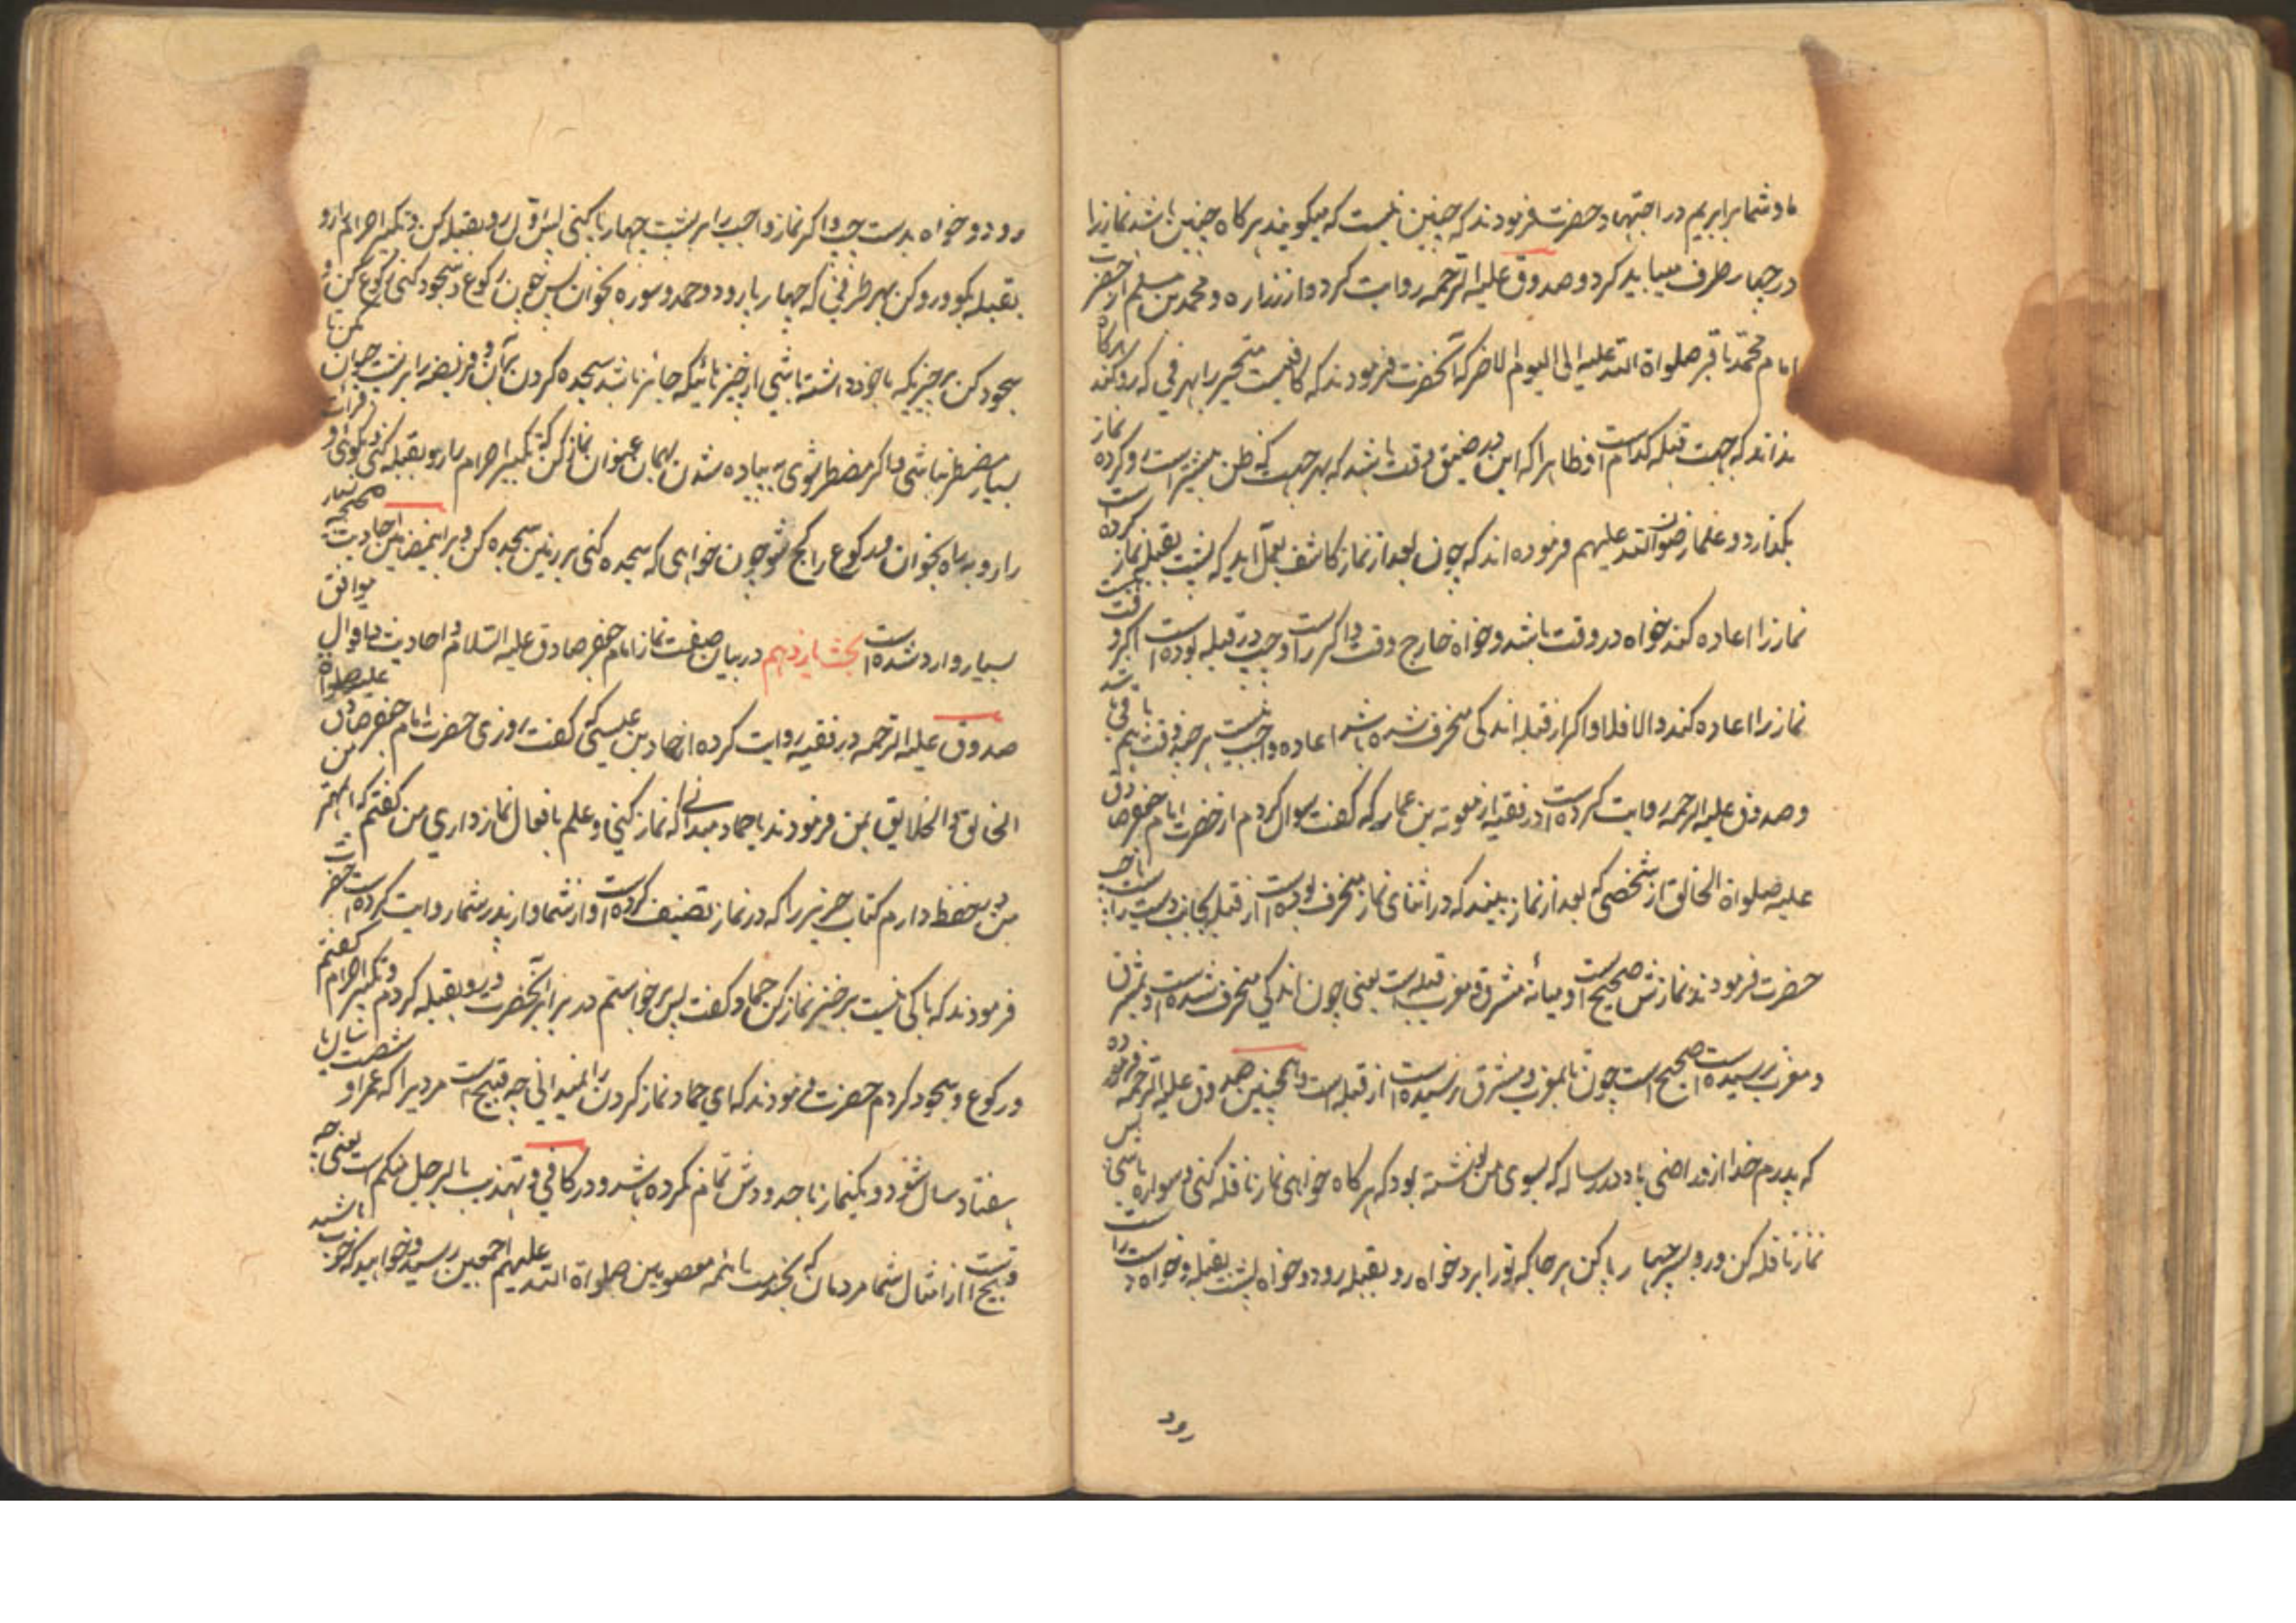 ما و شما برابریم در اجتهاد حضرت فرمودند که چنین نیست که میکویند هرکاه چنین باشد نماز را
در چهار طرف میباید کرد و صدوق علیه الرحمه روایت کرده از زراره و محمد بن مسلم از حضرت
امام محمد باقر صلواة الله علیه الی الیوم الاخر که آنحضرت فرمودند که کافیست متحیر را بهر طرفی که رو کند هرکاه
نداند که جهت قبله کدامست و ظاهرا که این در ضیق وقت باشد که بهر جهت که ظن بیشتر است رو کرده نماز
بکذارد و علما رضوان الله علیهم فرموده اند که چون بعد از نماز کاشف بعمل آید که پشت بقبله نماز کرده است
نماز را اعاده کند خواه در وقت باشد و خواه خارج وقت و اکر راست و چپ در قبله بوده است اکر وقت
نماز را اعاده کند و الا فلا و اکر از قبله اندکی منحرف شده باشد اعاده واجب نیست هر چند وقت هم باقی باشد
و صدوق علیه الرحمه روایت کرده است در فقیه از معویه بن عمار که کفت سوال کردم از حضرت امام جعفر صادق
علیه صلواة الخالق از شخصی که بعد از نماز ببیند که در اثنای نماز منحرف بوده است از قبله بجانب دست راست یا چپ
حضرت فرمودند نمازش صحیح است و میانه مشرق و مغرب قبله است یعنی چون اندکی منحرف شده است و بمشرق
و مغرب نرسیده است صحیح است چون تا بمغرب و مشرق نرسیده است از قبله است و همچنین صدوق علیه الرحمه فرموده
که پدرم خدا از و راضی باد در رساله که بسوی من نوشته بود که هرکاه خواهی نماز نافله کنی و سواره باشی پس
نماز نافله کن و رو بسر چهار پا کن هر جا که تو را برد خواه رو بقبله رود و خواه پشت بقبله و خواه دست راست
رود
رود و خواه بدست چپ و اکر نماز واجب را بر پشت چهارپا کنی پس اول رو بقبله کن و تکبیر احرام را رو
بقبله بکو و رو کن بهر طرفی که چهارپا رود و حمد و سوره بخوان پس چون رکوع و سجود کنی رکوع کن و
سجود کن بر چیزیکه با خود داشته باشی از چیزهائیکه جائز باشد سجده کردن بر آن و فریضه را بر پشت حیوان مکن تا
بسیار مضطر نباشی و اکر مضطر شوی به پیاده شدن بهمان عنوان نماز کن که تکبیر احرام را رو بقبله کنی و بکوئی و قرائت
را رو براه بخوان و در رکوع را کج شو چون خواهی که سجده کنی بر زمین سجده کن و بر این مضامین احادیث صحیحه بسیار
بسیار وارد شده است بحث یازدهم در بیان صفت نماز امام جعفر صادق علیه السلام و احادیث و اقوال موافق
صدوق علیه الرحمه در فقیه روایت کرده از حماد بن عیسی که کفت روزی حضرت امام جعفر صادق علیه صلواة
الخالق و الخلایق بمن فرمودند یا حماد میدانی که نماز کنی و علم بافعال نماز داری من کفتم که ای مهتر من
من بحفظ دارم کتاب حریز را که در نماز تصنیف کرده است و از شما و از پدر شما روایت کرده است حضرت
فرمودند که باکی نیست برخیز نماز کن حماد کفت پس برخواستم در برابر آنحضرت و رو بقبله کردم و تکبیر احرام کفتم
و رکوع و سجود کردم حضرت فرمودند که ای حماد نماز کردن را نمیدانی چه قبیح است مردیرا که عمر او شصت سال یا
هفتاد سال شود و یکنماز با حدودش تمام نکرده باشد و در کافی و تهذیب بالرجل منکم است یعنی چه
قبیح است از امثال شما مردمان که بخدمت ائمه معصومین صلواة الله علیهم اجمعین رسیده و خوانید که خوب باشید